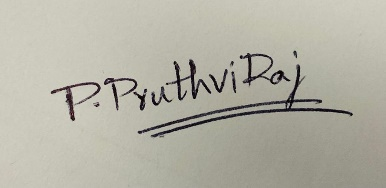 P. PruthviRaj